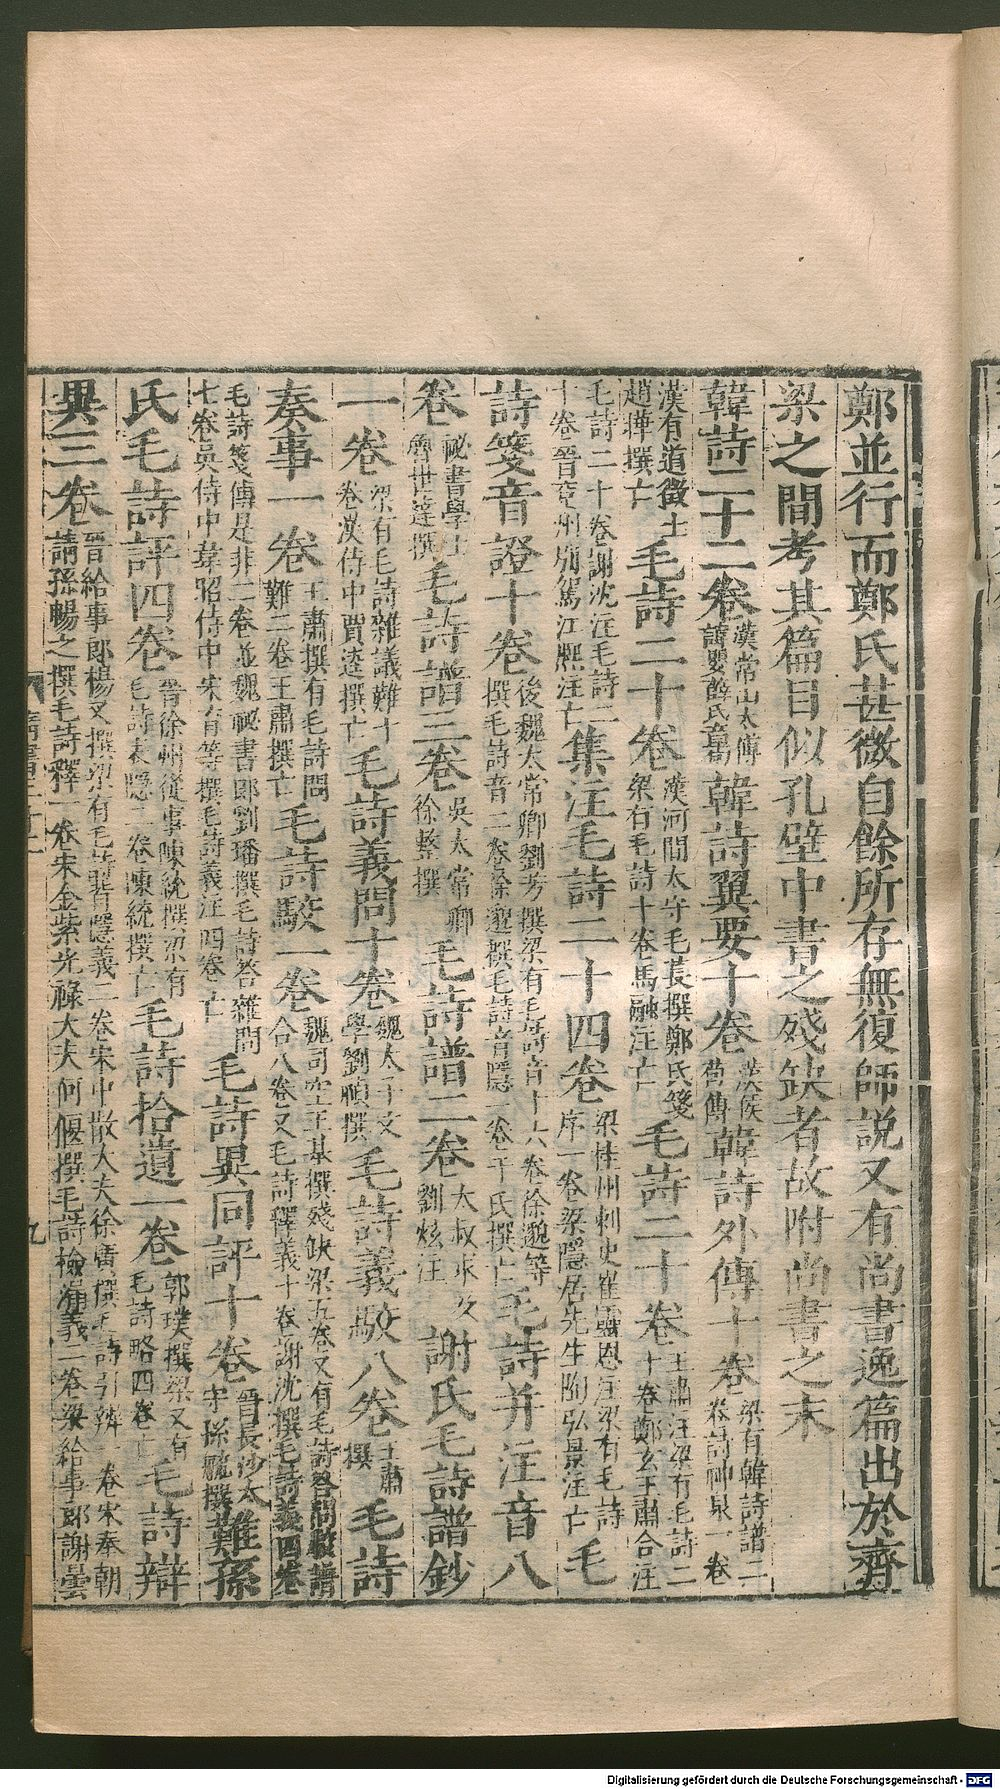 鄭並行而鄭氏甚微自餘所存無復師說又有尚書逸篇出於齊
梁之間考其篇目似孔壁中書之殘缺者故附尚書之末
韓詩二十二卷漢常山太傅韓嬰薛氏章句韓詩翼要十卷漢侯苞傳韓詩外傳十卷梁有韓詩譜二卷詩神泉一卷
漢有道徵士趙曄撰亡毛詩二十卷漢河間太守毛萇撰鄭氏箋梁有毛詩十卷馬融注亡毛詩二十卷王肅注梁有毛詩二十卷鄭玄王肅合注
毛詩二十卷謝沈注毛詩二十卷晉兗州別駕江熙注亡集注毛詩二十四卷梁桂州刺史崔靈恩注梁有毛詩序一卷梁隱居先生陶弘景注亡毛
詩箋音證十卷後魏太常卿劉芳撰梁有毛詩音十六卷徐邈等撰毛詩音二卷徐邈撰毛詩音隱一卷干氏撰亡毛詩并注音八
卷祕書學士魯世達撰毛詩譜三卷吳太常卿徐整撰毛詩譜二卷太叔求及劉炫注謝氏毛詩譜鈔
一卷梁有毛詩雜議難十卷漢侍中賈逵撰亡毛詩義問十卷魏太子文學劉楨撰毛詩義駮八卷王肅撰毛詩
奏事一卷王肅撰有毛詩問難二卷王肅撰亡毛詩駮一卷魏司空王基撰殘缺梁五卷又有毛詩答問駮譜合八卷又毛詩釋義十卷謝沈撰毛詩義四卷
毛詩箋傳是非二卷並魏祕書郎劉璠撰毛詩答雜問七卷吳侍中韋昭侍中朱育等撰毛詩義注四卷亡毛詩異同評十卷晉長沙太守孫毓撰難孫
氏毛詩評四卷晉徐州從事陳統撰梁有毛詩表隱二卷陳統撰亡毛詩拾遺一卷郭璞撰梁又有毛詩略四卷亡毛詩辯
異三卷晉給事郎楊乂撰梁有毛詩背隱義二卷宋中散大夫徐廣撰毛詩引辨一卷宋奉朝請孫暢之撰毛詩釋一卷宋金紫光祿大夫何偃撰毛詩檢漏義二卷梁給事郎謝曇
九
Digitalisierung gefördert durch die Deutsche Forschungsgemeinschaft - DFG